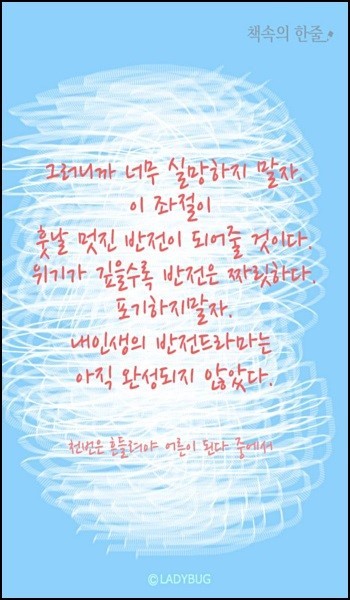 책속의 한줄
그러니까 너무 실망하지 말자.
이 좌절이
훗날 멋진 반전이 되어줄 것이다.
위기가 깊을수록 반전은 짜릿하다.
포기하지말자.
내인생의 반전드라마는
아직 완성되지 않았다.
천번은 흔들려야 어른이 된다 중에서
©LADYBUG